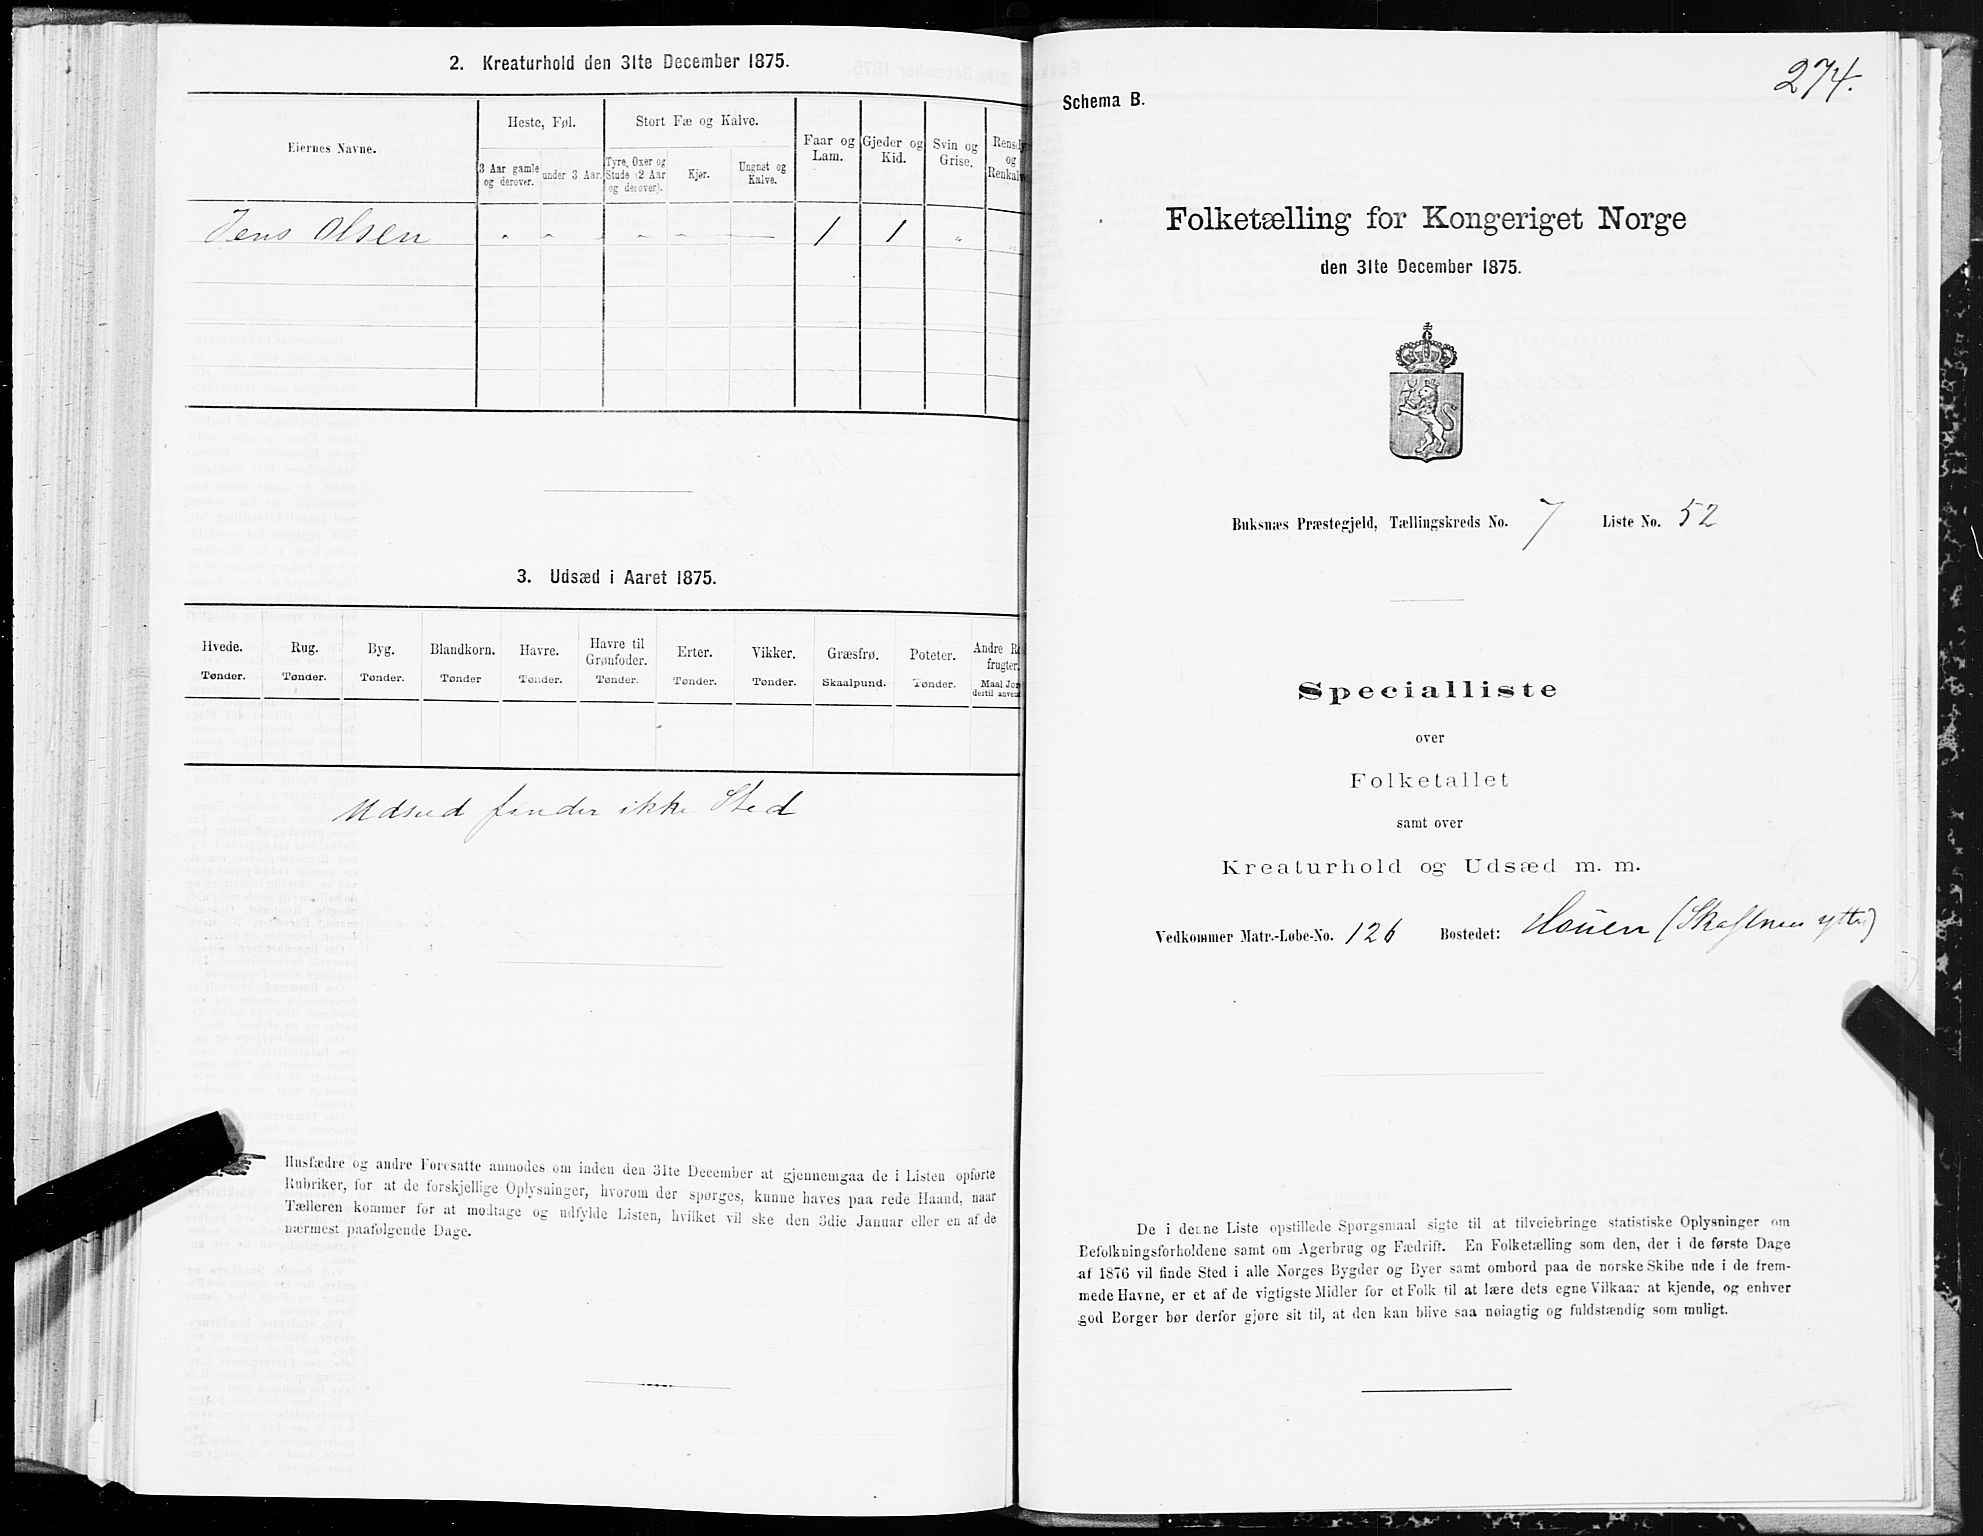 2. Kreaturhold den 31te December 1875.
Eiernes Navne.
Heste, Føl.
Stort Fæ og Kalve.
Faar og Lam.
Gjeder og Kid.
Svin og Grise.
Rensdy
og
Renkalv
3 Aar gamle og derover.
under 3 Aar.
Tyre, Oxer og Stude (2 Aar og derover).
Kjør.
Ungnøt og Kalve.
Jens Olsen " " " " " — 1 1 " "
3. Udsæd i Aaret 1875.
Hvede. Rug. Byg. Blandkorn. Havre. Havre til Grønfoder. Erter. Vikker. Græsfrø. Poteter. Andre Ro frugter.
Tønder. Tønder. Tønder. Tønder Tønder. Tønder. Tønder. Tønder. Skaalpund. Tønder. Maal Jor dertil anvend
Udsæd finder ikke Sted
Husfædre og andre Foresatte anmodes om inden den 31te December at gjennemgaa de i Listen opførte
Rubriker, for at de forskjellige Oplysninger, hvorom der spørges, kunne haves paa rede Haand, naar
Tælleren kommer for at modtage og udfylde Listen, hvilket vil ske den 3die Januar eller en af de
nærmest paafølgende Dage.
274.
Schema B.
Folketælling for Kongeriget Norge
den 31te December 1875.
Buksnæs Præstegjeld, Tællingskreds No. 7 Liste No. 52
Specialliste
over
Folketallet
samt over
Kreaturhold og Udsæd m. m.
Vedkommer Matr.-Løbe-No. 126 Bostedet: Houen (Skaftnes ytter)
De i denne Liste opstillede Spørgsmaal sigte til at tilveiebringe statistiske Oplysninger om
Befolkningsforholdene samt om Agerbrug og Fædrift. En Folketælling som den, der i de første Dage
af 1876 vil finde Sted i alle Norges Bygder og Byer samt ombord paa de norske Skibe ude i de frem-
mede Havne, er et af de vigtigste Midler for et Folk til at lære dets egne Vilkaar at kjende, og enhver
god Borger bør derfor gjøre sit til, at den kan blive saa nøiagtig og fuldstændig som muligt.